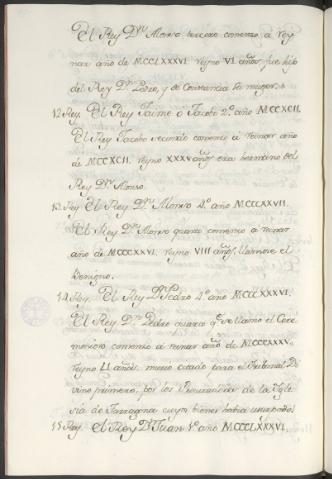 El Rey Dn. Alonso tercero comenso á Rey
nar año de MCCLXXXVI. reyno VI años, fue hijo
del Rey Dn. Pedro, y de Constancia su muger.
12 Rey. El Rey Jaime ó Jacobo 2º. año MCCXCII.
El Rey Jacobo secundo comenso á reinar año
de MCCXCII. reyno XXXV años era hermano del
Rey Dn. Alonso.
13 Rey. El Rey Dn. Alonso 4º. año MCCCXXVII.
El Rey Dn. Alonso quarto comenso á reinar
año de MCCCXXVI. reyno VIII años, llamose el
Benigno.
14 Rey. El Rey Dn. Pedro 4º. año MCCCXXXVI.
El Rey Dn. Pedro quarto qe. se llamo el Cere
monioso comenso á reinar año de MCCCXXXV.
reyno LI años. murio citado para el Tribunal Di
vino primero, por los de la Igle
sia de Tarragona cuyos bienes habia usurpado.
15 Rey. El Rey Dn. Juan 1º. año MCCCLXXXVI.